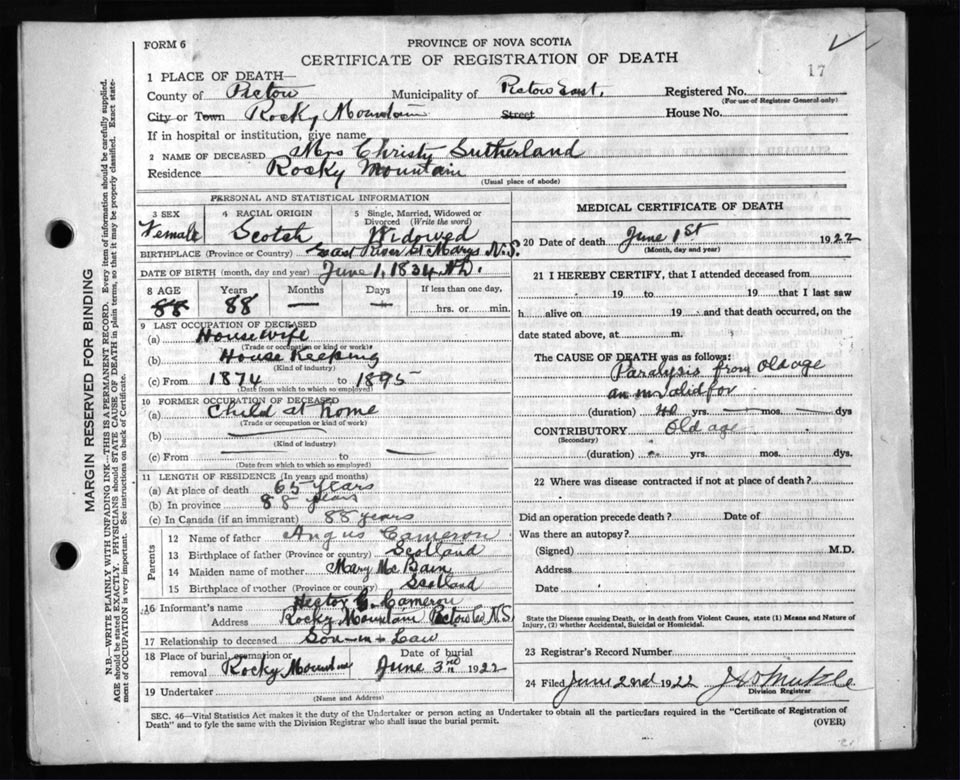 FORM 6
PROVINCE OF NOVA SCOTIA
CERTIFICATE OF REGISTRATION OF DEATH
17
1 PLACE OF DEATH—
County of Pictou Municipality of Pictou East, Registered No.
(For use of Registrar General only)
City or Town Rocky Mountain Street House No.
If in hospital or institution, give name
2 NAME OF DECEASED Mrs Christy Sutherland
Residence Rocky Mountain
(Usual place of abode)
PERSONAL AND STATISTICAL INFORMATION
3 SEX 4 RACIAL ORIGIN 5 Single, Married, Widowed or Divorced (Write the word)
Female Scotch Widowed
BIRTHPLACE (Province or Country) East River St Marys N.S.
DATE OF BIRTH (month, day and year) June 1, 1834 A.D.
8 AGE Years Months Days If less than one day,
88 88 — — hrs. or min.
9 LAST OCCUPATION OF DECEASED
(a) House wife
(Trade or occupation or kind of work)
(b) House Keeping
(Kind of industry)
(c) From 1874 to 1895
(Date from which to which so employed)
10 FORMER OCCUPATION OF DECEASED
(a) Child at home
(Trade or occupation or kind of work)
(b)
(Kind of industry)
(c) From — to —
(Date from which to which so employed)
11 LENGTH OF RESIDENCE (In years and months)
(a) At place of death 65 years
(b) In province 88 years
(c) In Canada (if an immigrant) 88 years
Parents
12 Name of father Angus Cameron
13 Birthplace of father (Province or country) Scotland
14 Maiden name of mother Mary McBain
15 Birthplace of mother (Province or country) Scotland
16 Informant's name Hector Cameron
Address Rocky Mountain Pictou Co N.S.
17 Relationship to deceased Son-in-Law
18 Place of burial, cremation or removal Rocky Mountain Date of burial June 3rd 1922
19 Undertaker
(Name and Address)
MEDICAL CERTIFICATE OF DEATH
20 Date of death June 1st 1922
(Month, day and year)
21 I HEREBY CERTIFY, that I attended deceased from
19 to 19 that I last saw
h alive on 19 and that death occurred, on the
date stated above, at m.
The CAUSE OF DEATH was as follows:
Paralysis from old age
an invalid for
(duration) 40 yrs. — mos. — dys
CONTRIBUTORY Old age
(Secondary)
(duration) yrs. mos. dys.
22 Where was disease contracted if not at place of death?
Did an operation precede death? Date of
Was there an autopsy?
(Signed) M.D.
Address
Date
State the Disease causing Death, or in death from Violent Causes, state (1) Means and Nature of Injury, (2) whether Accidental, Suicidal or Homicidal.
23 Registrar's Record Number
24 Filed June 2nd 1922
Division Registrar
SEC. 46—Vital Statistics Act makes it the duty of the Undertaker or person acting as Undertaker to obtain all the particulars required in the "Certificate of Registration of
Death" and to fyle the same with the Division Registrar who shall issue the burial permit.
(OVER)
MARGIN RESERVED FOR BINDING
N.B.—WRITE PLAINLY WITH UNFADING INK—THIS IS A PERMANENT RECORD. Every item of information should be carefully supplied.
AGE should be stated EXACTLY. PHYSICIANS should STATE CAUSE OF DEATH in plain terms, so that it may be properly classified. Exact statement of OCCUPATION is very important. See instructions on back of Certificate.